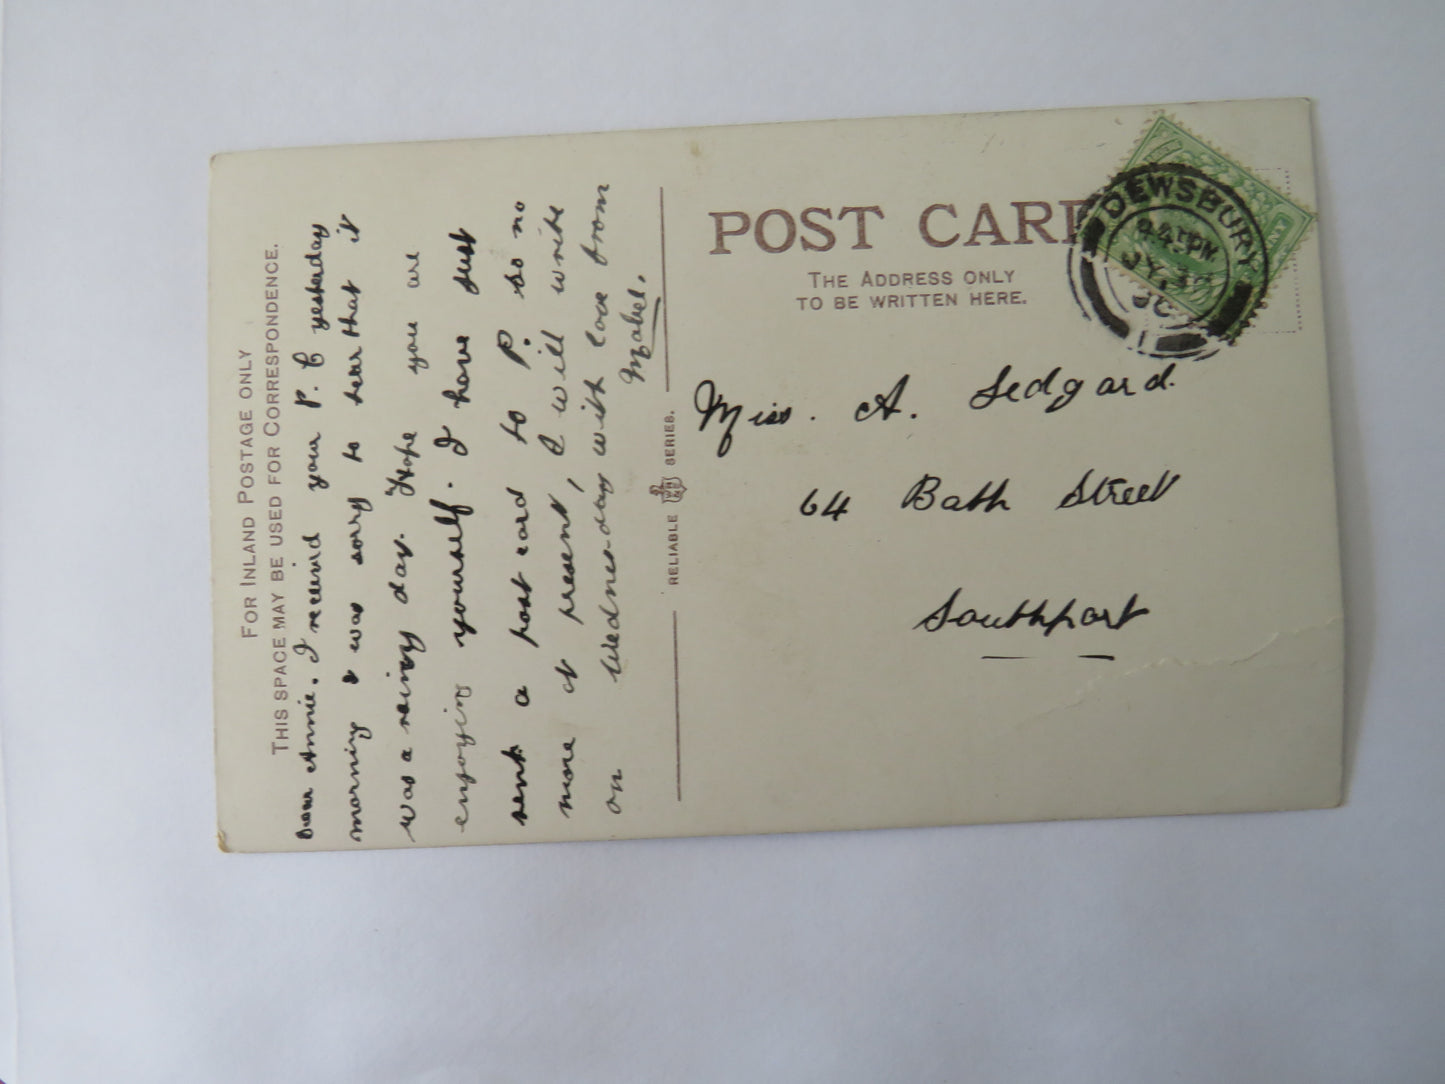 FOR INLAND POSTAGE ONLY
THIS SPACE MAY BE USED FOR CORRESPONDENCE.
Dear Annie. I received your P. C yesterday
morning & was sorry to hear that it
was a reiny day. Hope you are
enjoying yourself. I have just
sent a post card to P. so no
more at present, I will write
on Wednes-day with love from
Mabel.
RELIABLE SERIES.
POST CAR
THE ADDRESS ONLY
TO BE WRITTEN HERE.
DEWSBURY
JY
Miss. A. Sedgard.
64 Bath Street
Southport